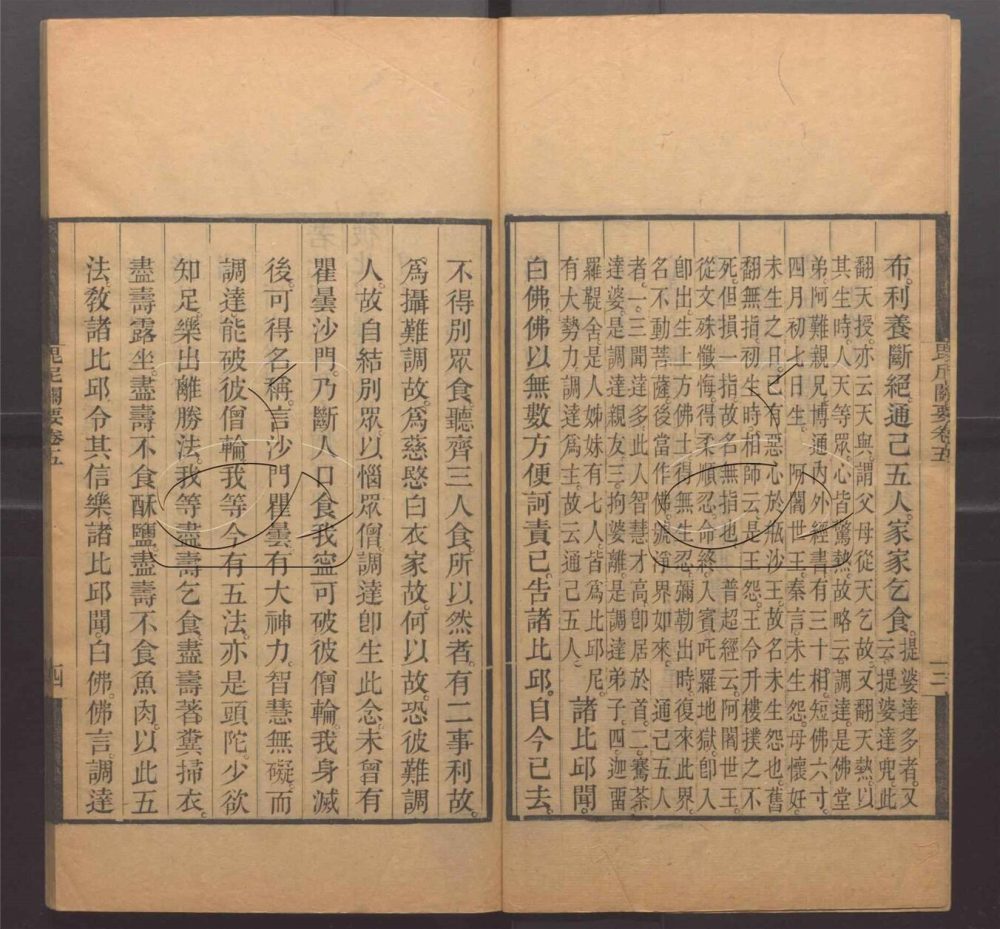 布。利養斷絕。通己五人。家家乞食。提婆達多者。又
云提婆達兜此
翻天授。亦云天與。謂父母從天乞故。又翻天熱。以
其生時。人天等眾。心皆驚熱。故略云。調達。是佛堂
弟。阿難親兄博通內外經書有三十相。短佛六寸。
四月初七日生。 阿闍世王。秦言未生怨。母懷妊
未生之日。已有惡心於瓶沙王。故名未生怨也。舊
翻無指。初生時。相師云是王怨。王令升樓撲之不
死。但損一指。故名無指也。 普超經云。阿闍世王。
從文殊懺悔。得柔順忍。命終入賓吒羅地獄。卽入
卽出。生上方佛土。得無生忍。彌勒出時。復來此界。
名不動菩薩。後當作佛。號淨界如來。 通己五人
者。一。三聞達多。此人智慧才高。卽居於首。二。騫荼
達婆。是調達親友。三。拘婆離。是調達弟子。四。迦畱
羅鞮舍。是人姊妹有七人。皆爲比邱尼。
有大勢力。調達爲主。故云通己五人。 諸比邱聞。
白佛。佛以無數方便訶責已。告諸比邱。自今已去。
毘尼關要卷五
三
不得別眾食。聽齊三人食。所以然者。有二事利故。
爲攝難調故。爲慈愍白衣家故。何以故。恐彼難調
人。故自結別眾。以惱眾僧。調達卽生此念。未曾有
瞿曇沙門。乃斷人口食。我寧可破彼僧輪。我身滅
後。可得名稱。言沙門瞿曇有大神力。智慧無礙。而
調達。能破彼僧輪。我等今有五法。亦是頭陀。少欲
知足。樂出離勝法。我等盡壽乞食。盡壽著糞。掃衣。
盡壽露坐。盡壽不食酥鹽。盡壽不食魚肉。以此五
法。敎諸比邱。令其信樂。諸比邱聞。白佛。佛言。調達
毘尼關要卷五
四